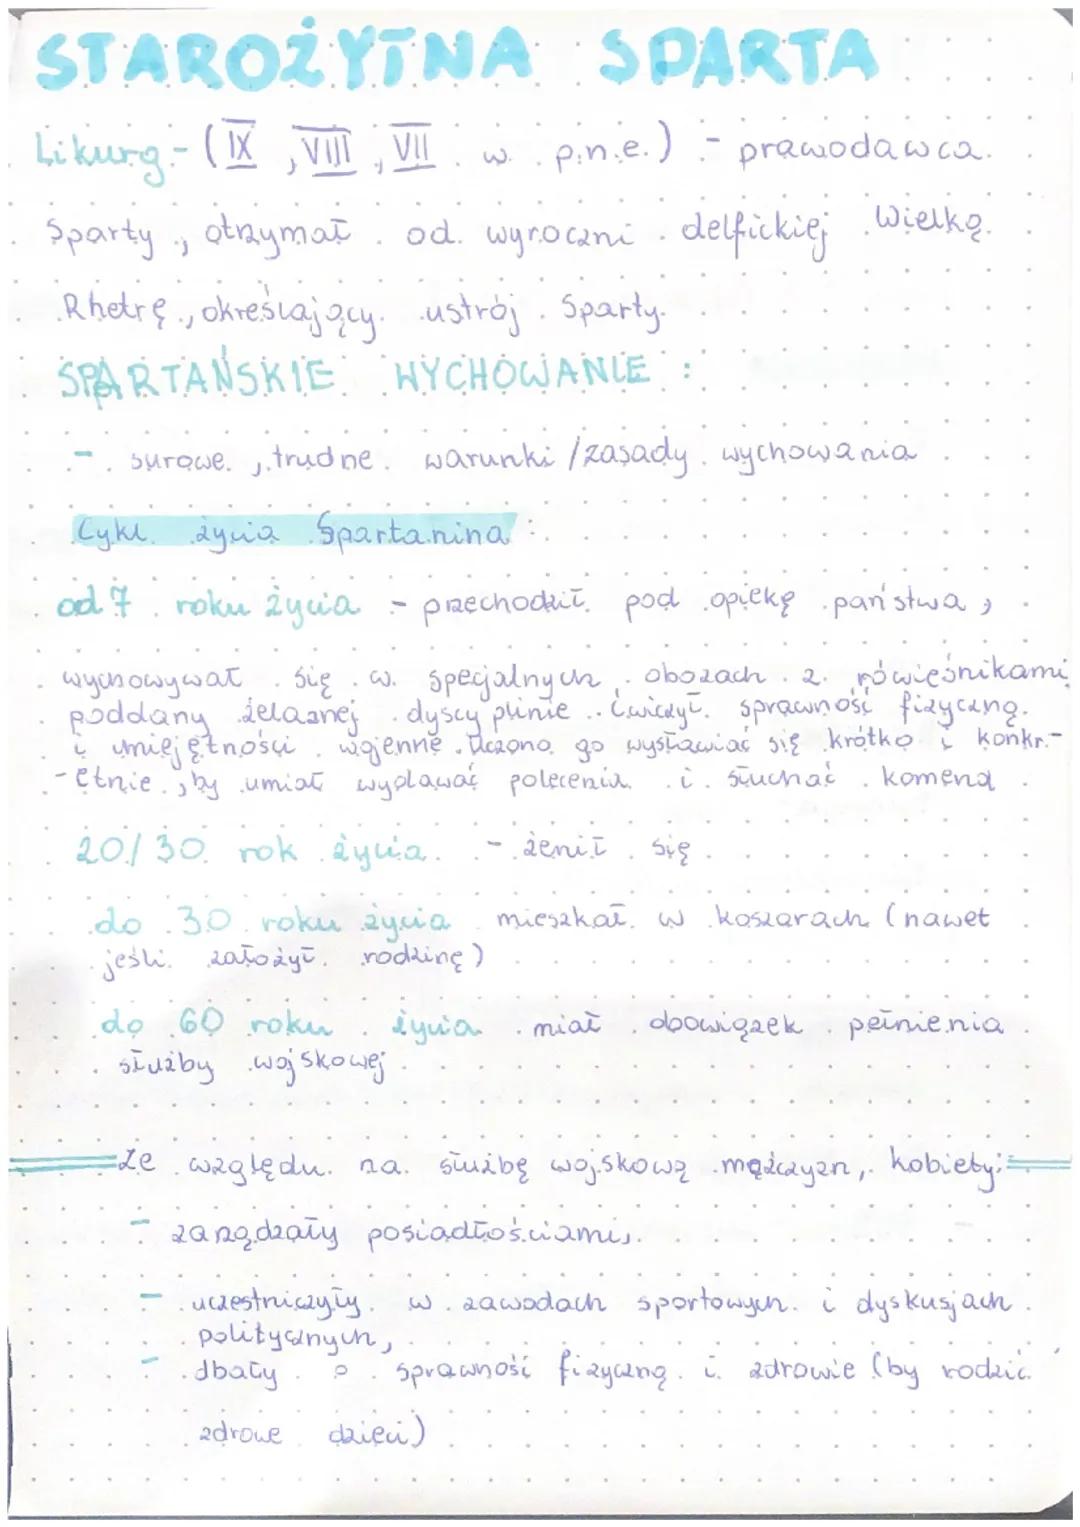 STAROŻYTNA SPARTA
Likurg - (IX, VIII, VII w. p.n.e.) - prawodawca
Sparty, otrzymał od wyroczni delfickiej Wielką
Rhetrę, określający ustrój Sparty.
SPARTAŃSKIE WYCHOWANIE:
- surowe, trudne warunki/zasady wychowania
Cykl życia Spartanina:
od 7 roku życia - przechodził pod opiekę państwa,
wychowywał się w specjalnych obozach z rówieśnikami
poddany żelaznej dyscyplinie. Ćwiczył sprawność fizyczną
i umiejętności wojenne. Uczono go wysławiać się krótko i konkr-
-etnie, by umiał wydawać polecenia i słuchać komend
20/30 rok życia - żenił się
do 30 roku życia mieszkał w koszarach (nawet
jeśli założył rodzinę)
do 60 roku życia miał obowiązek pełnienia
służby wojskowej
Ze względu na służbę wojskową mężczyzn, kobiety:
- zarządzały posiadłościami,
- uczestniczyły w zawodach sportowych i dyskusjach
politycznych,
- dbały o sprawność fizyczną i zdrowie (by rodzić
zdrowe dzieci)